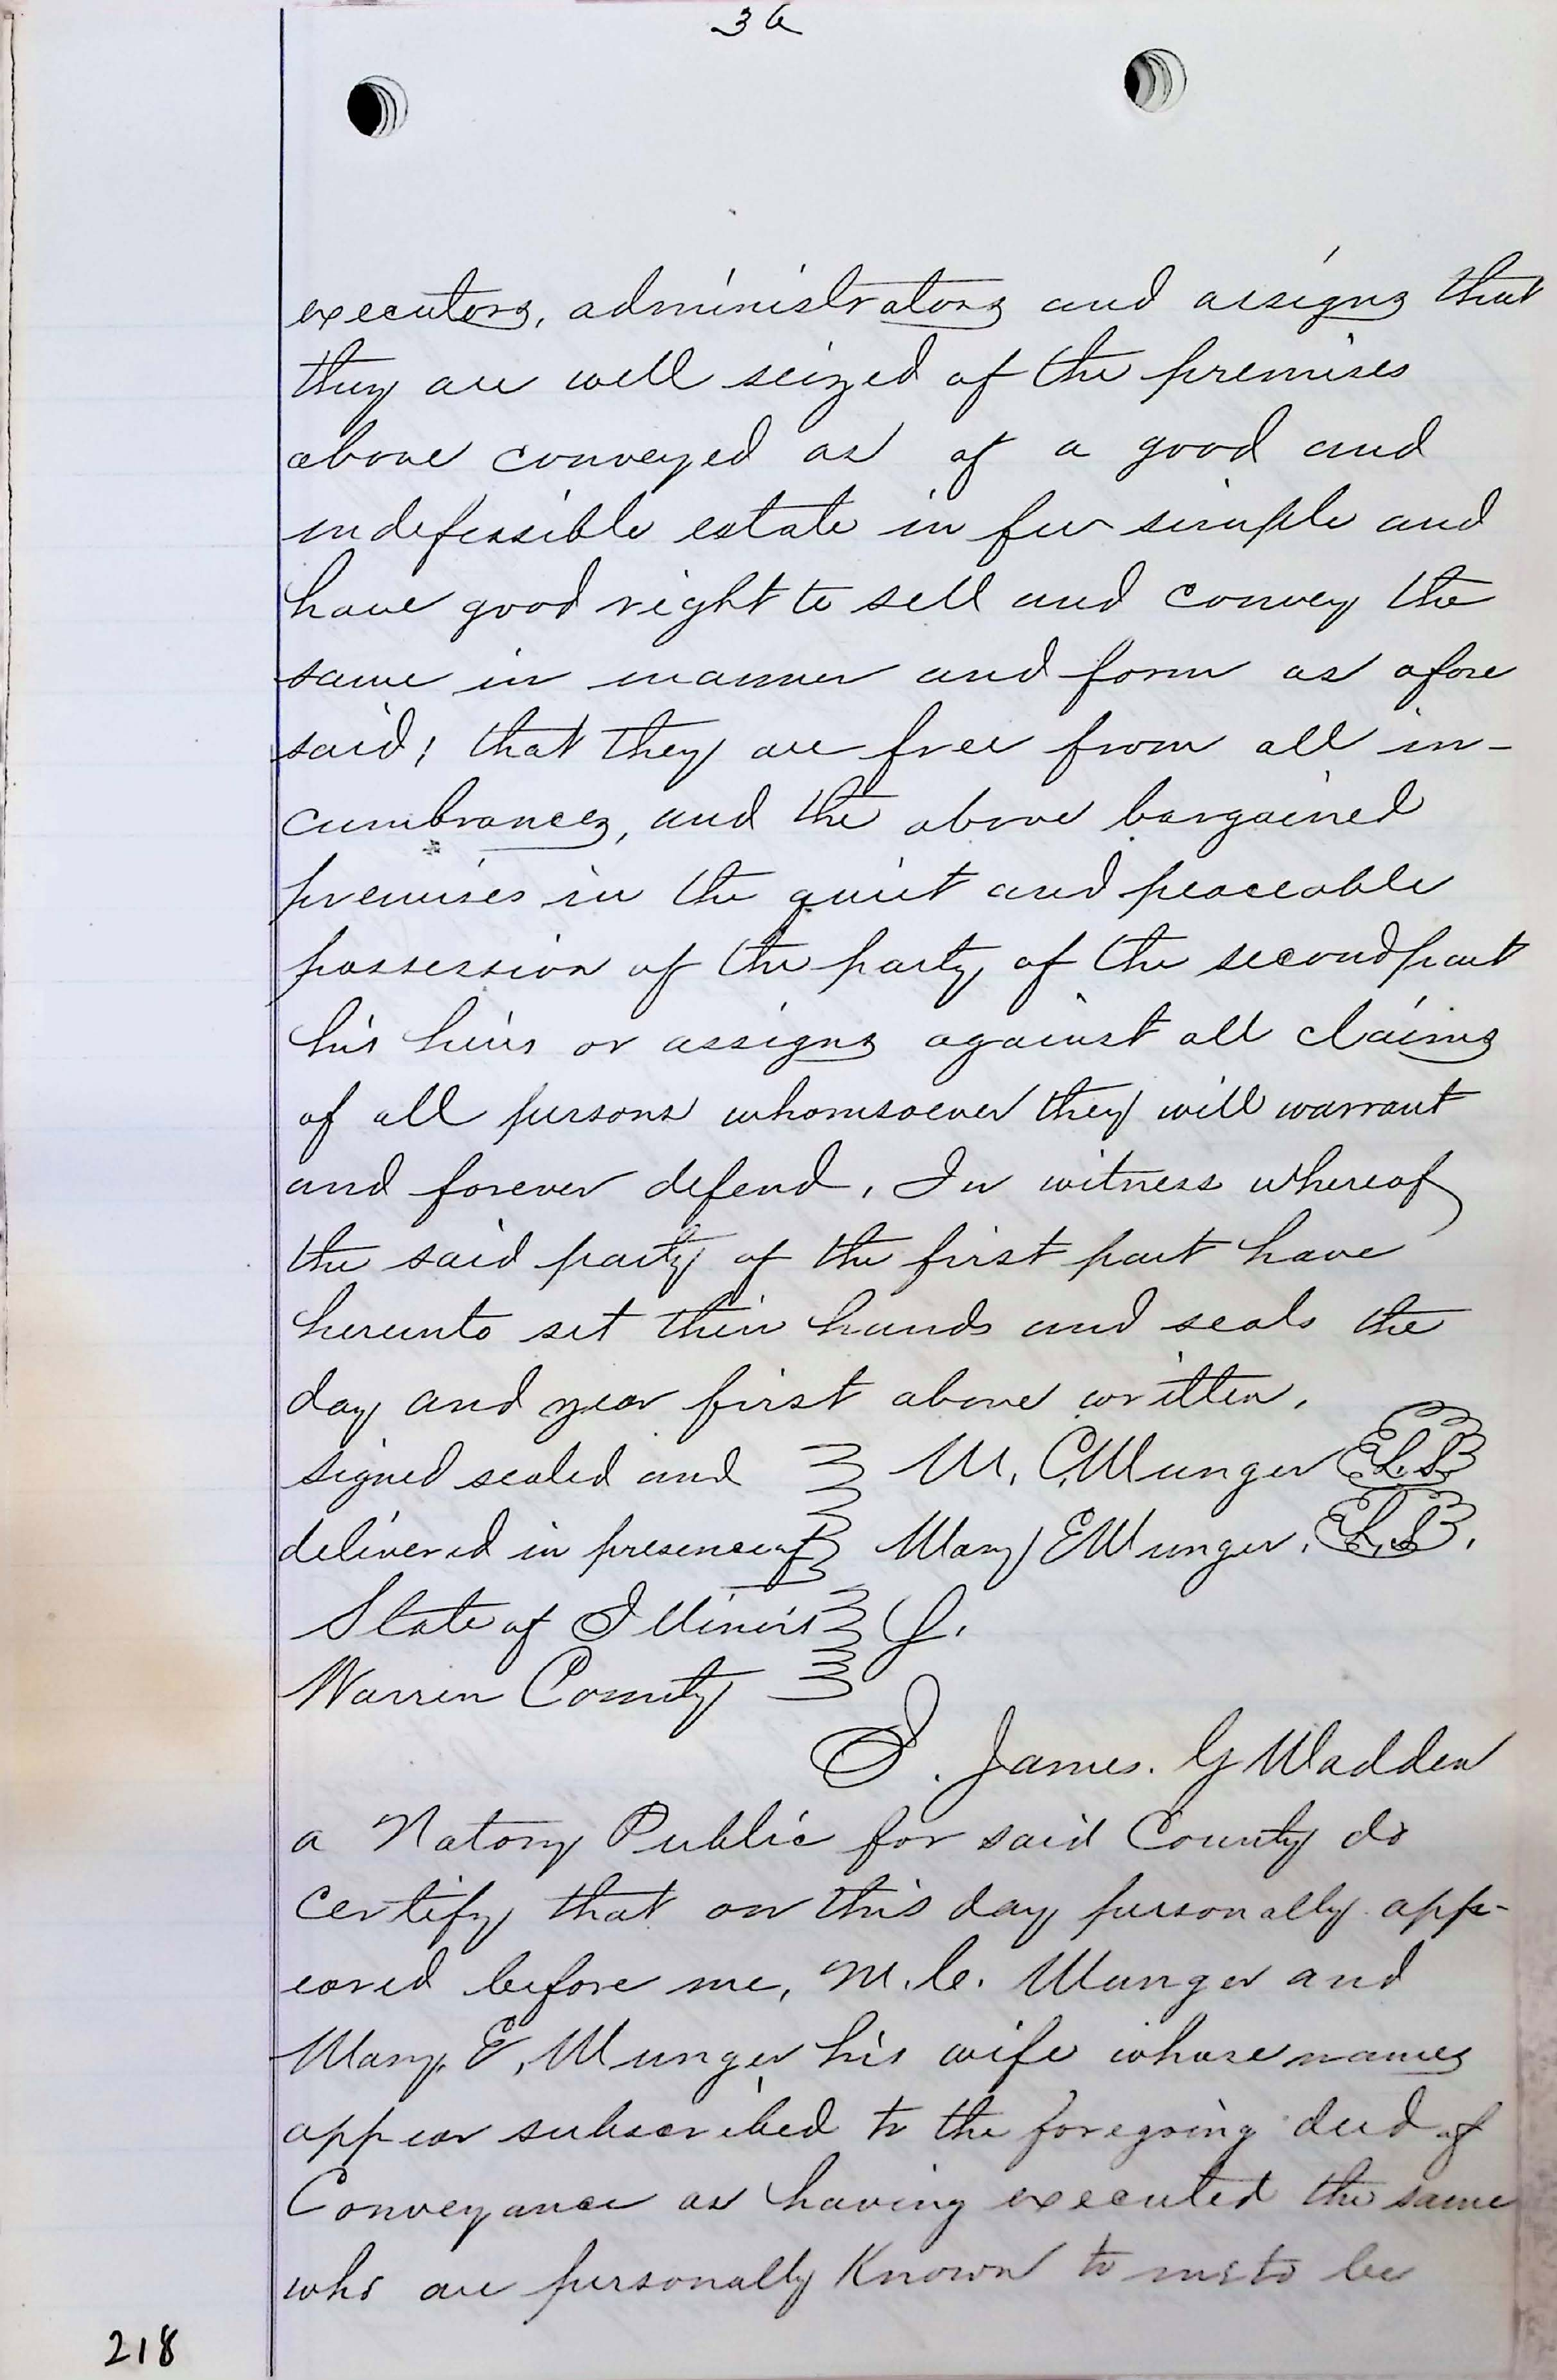 3a
executors, administrators and assigns that
they are well seized of the premises
above conveyed as of a good and
indefessible estate in fee simple and
have good right to sell and convey the
same in manner and form as afore
said; that they are free from all in-
cumbrances, and the above bargained
premises in the quiet and peaceable
possession of the party of the second part
his heirs or assigns against all claims
of all persons whomsoever they will warrant
and forever defend. In witness whereof
the said party of the first part have
hereunto set their hands and seals the
day and year first above written.
signed sealed and M. C. Munger L.S.
delivered in presence of Mary E Munger. L.S.
State of Illinois
Warren County
I. James. G Madden
a Notary Public for said County do
certify that on this day personally app-
eared before me, M. C. Munger and
Mary. E, Munger his wife whose names
appear subscribed to the foregoing deed of
Conveyance as having executed the same
who are personally Known to me to be
218